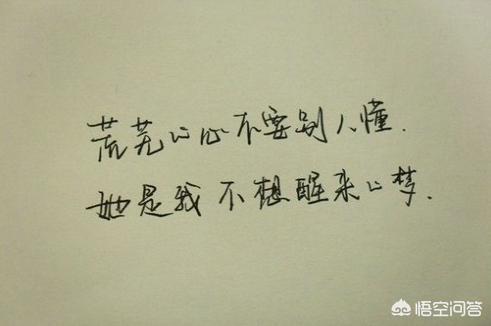 荒芜心心不要别人懂.
她是我不想醒来心梦.
悟空问答